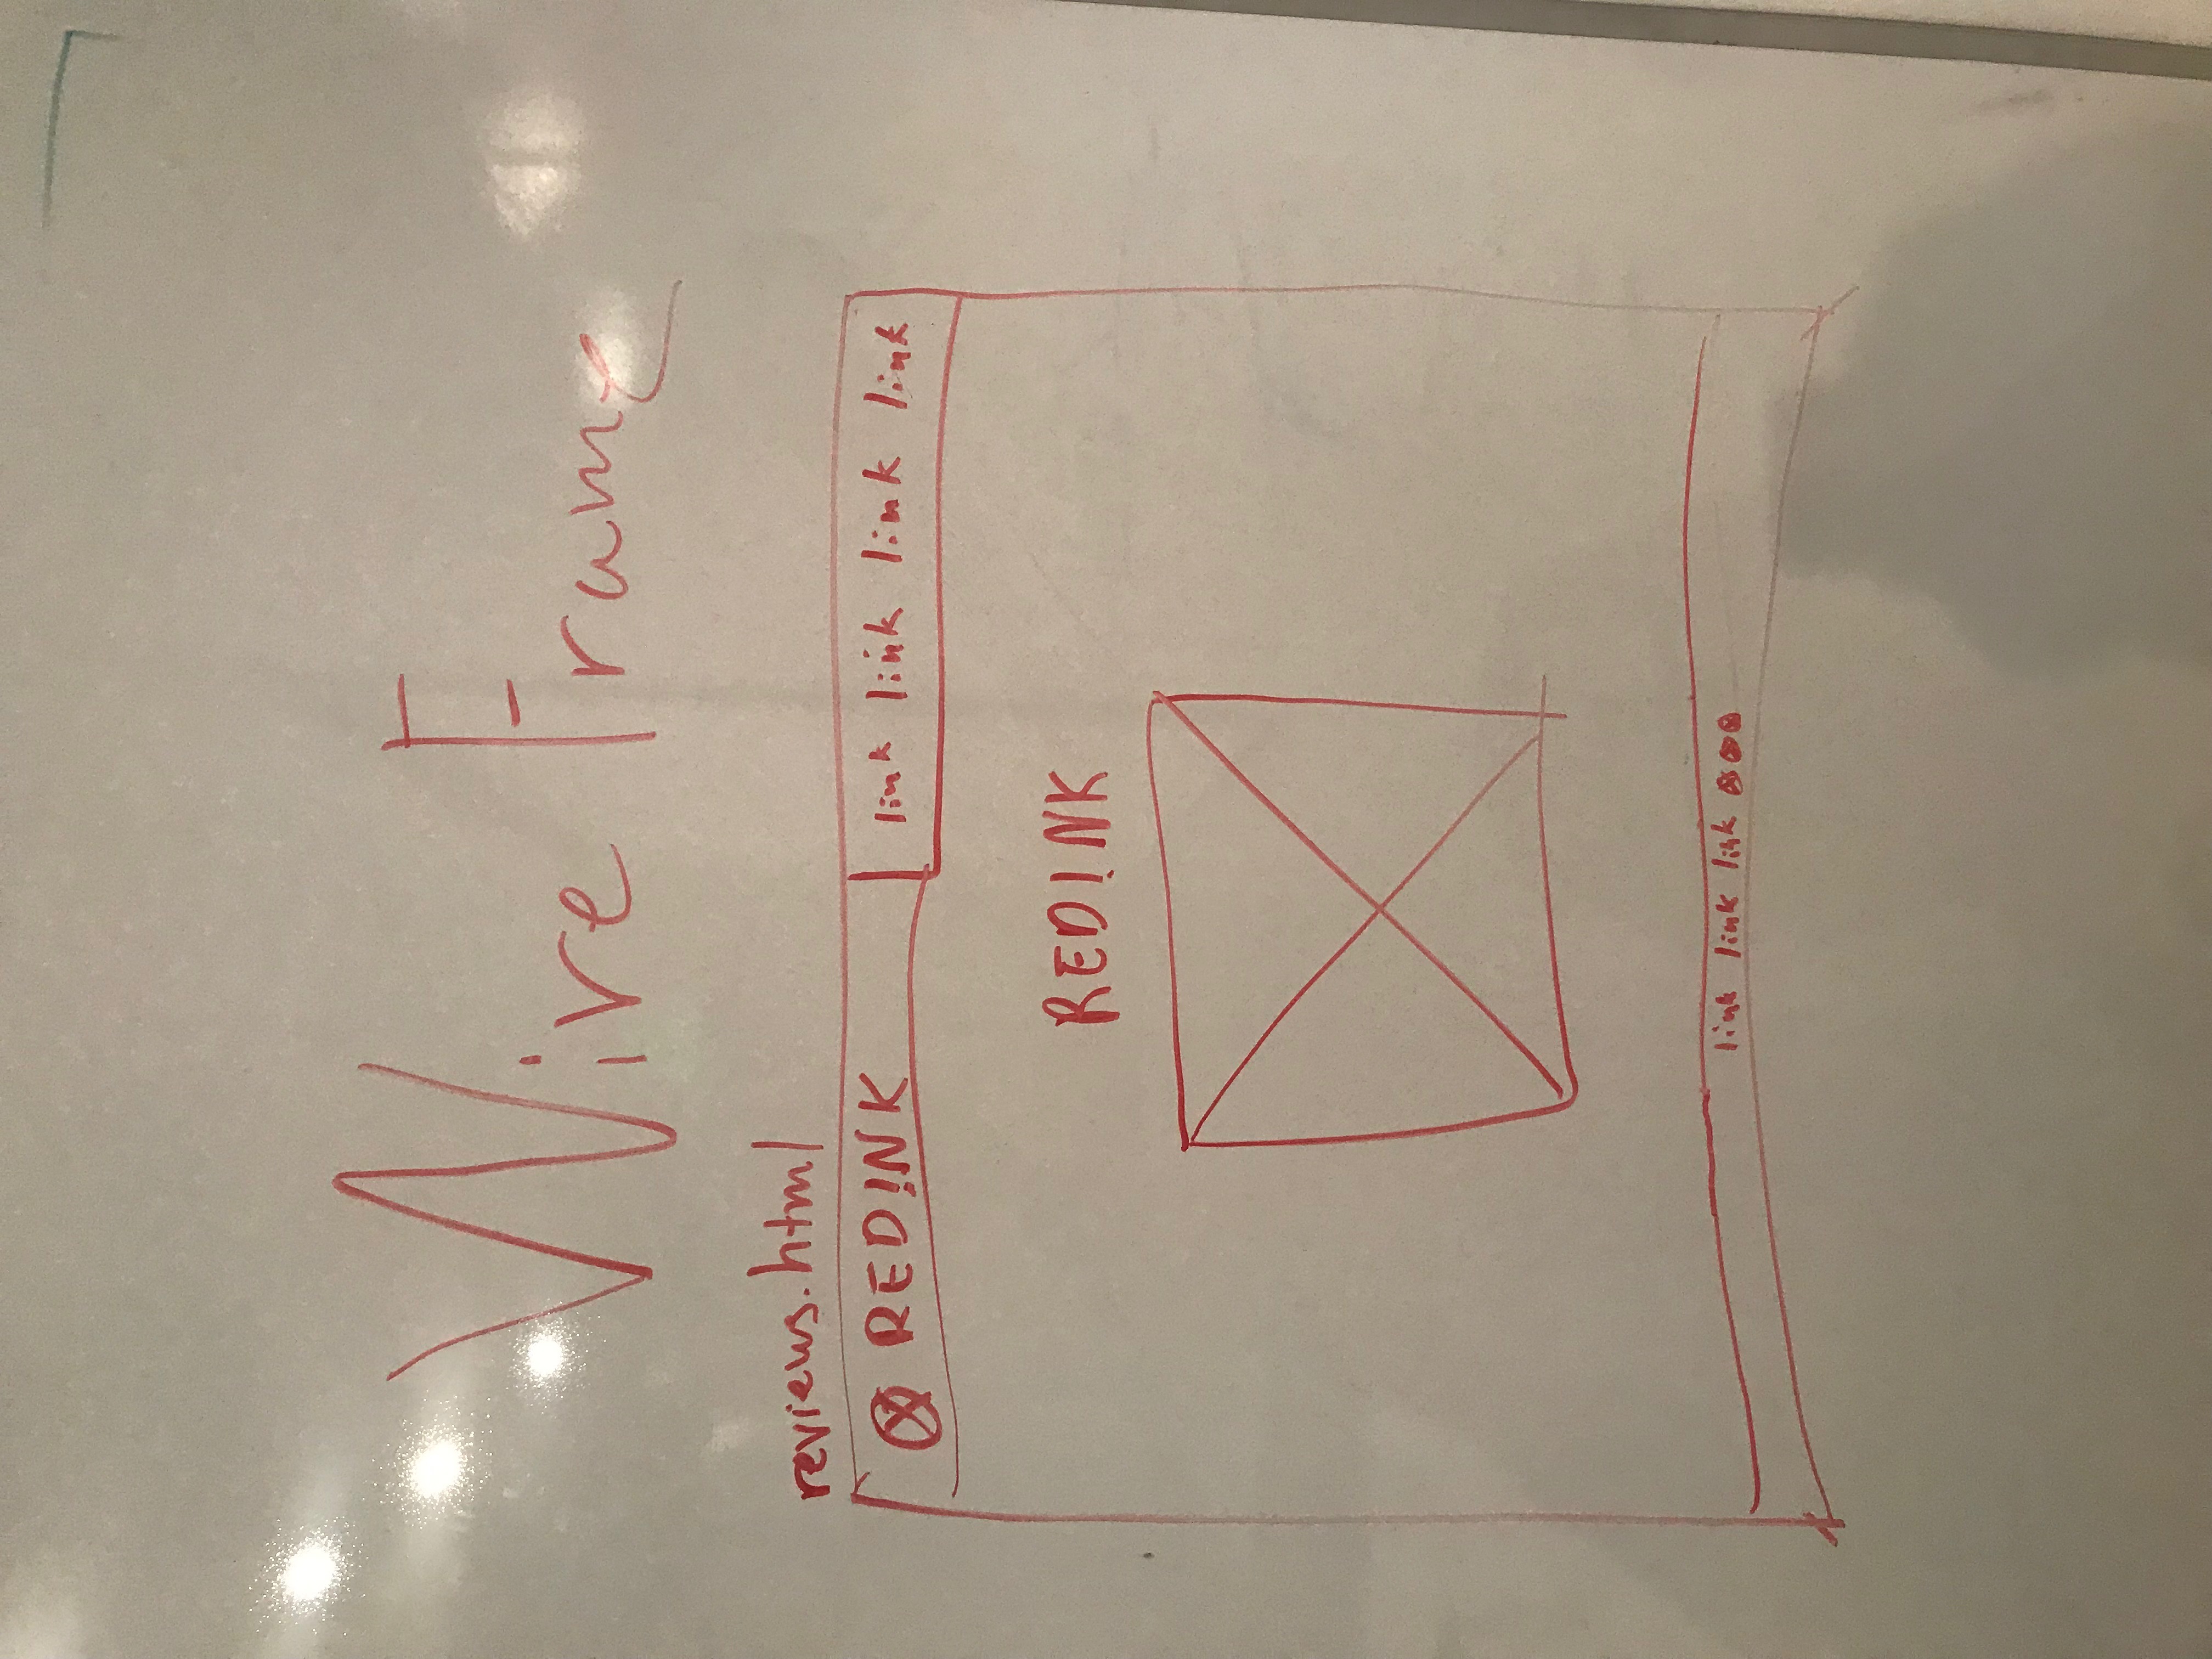 Wire Frame
reviews.html
RED!NK link link link link
RED!NK
link link link